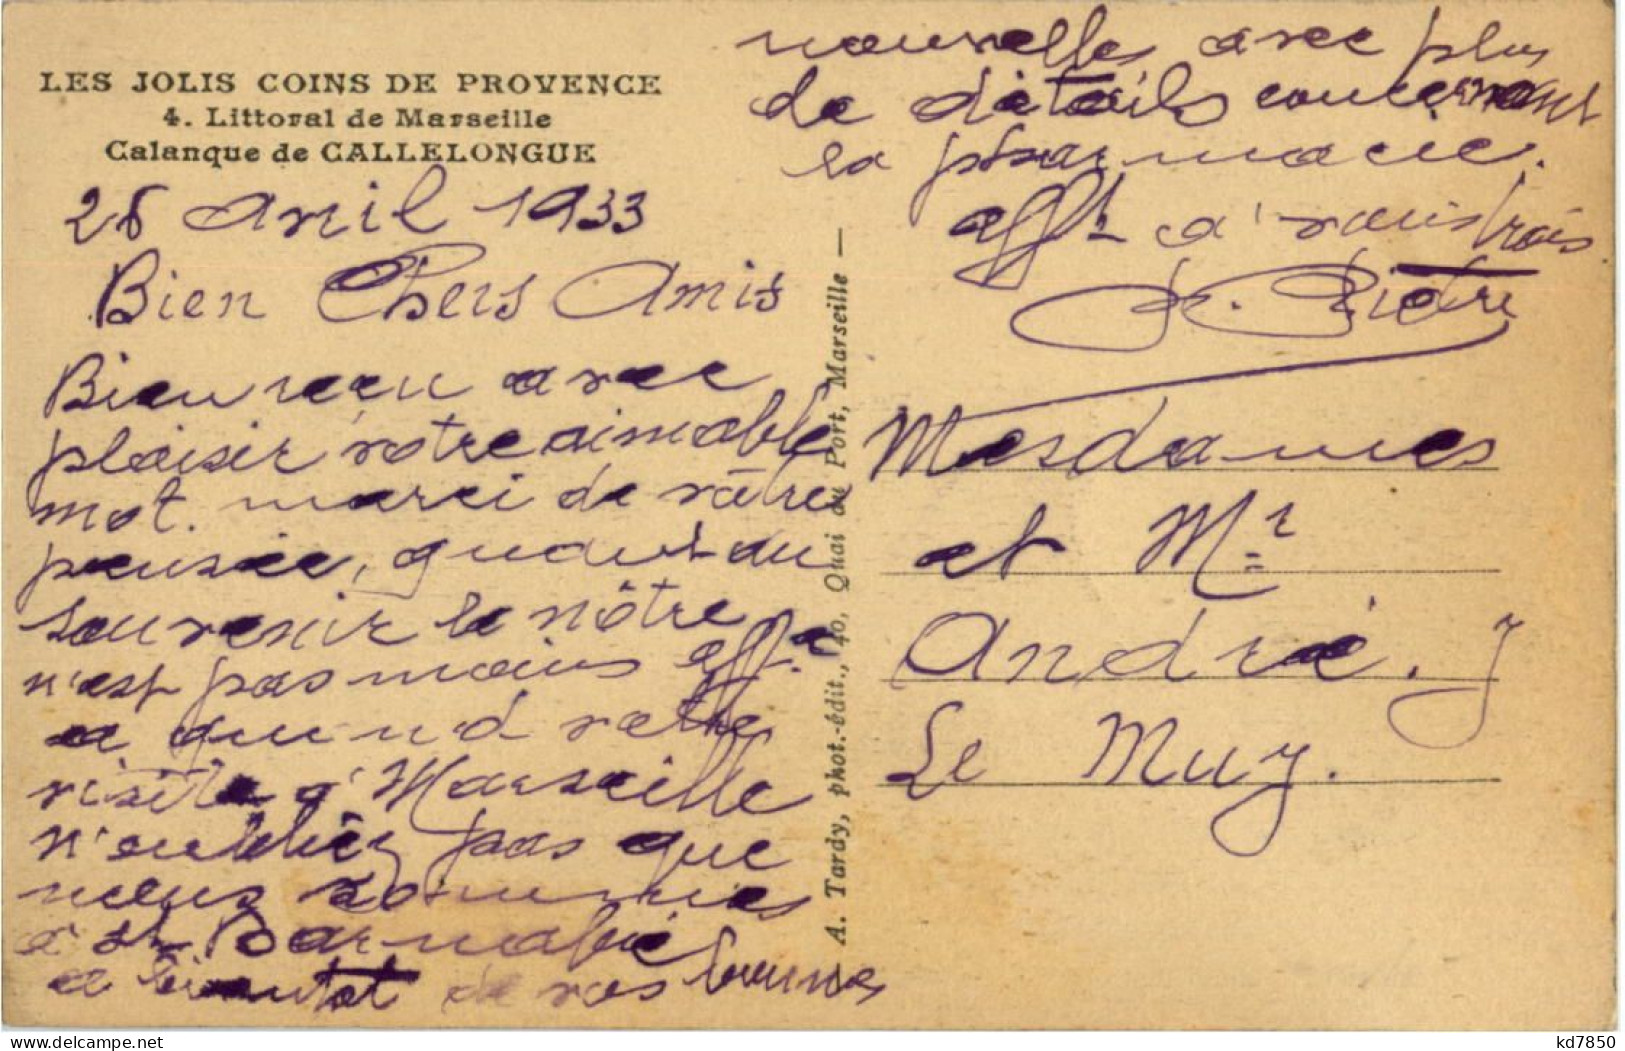 LES JOLIS COINS DE PROVENCE
4. Littoral de Marseille
Calanque de CALLELONGUE
26 avril 1933
Bien Chers Amis
Bien reçu avec
plaisir votre aimable
mot. merci de vôtre
pensée, quant au
souvenir le nôtre
n'est pas moins aff.
a quand votre
visite a Marseille
n'oubliez pas que
nous sommes
à St Barnabé
a bientot de vos bonnes
nouvelles avec plus
de détails concernant
la pharmacie.
afft a vous trois
A. Tardy, phot.-édit., 40, Quai du Port, Marseille —
Mesdames
et Mr
André. J
Le Muy.
kd7850